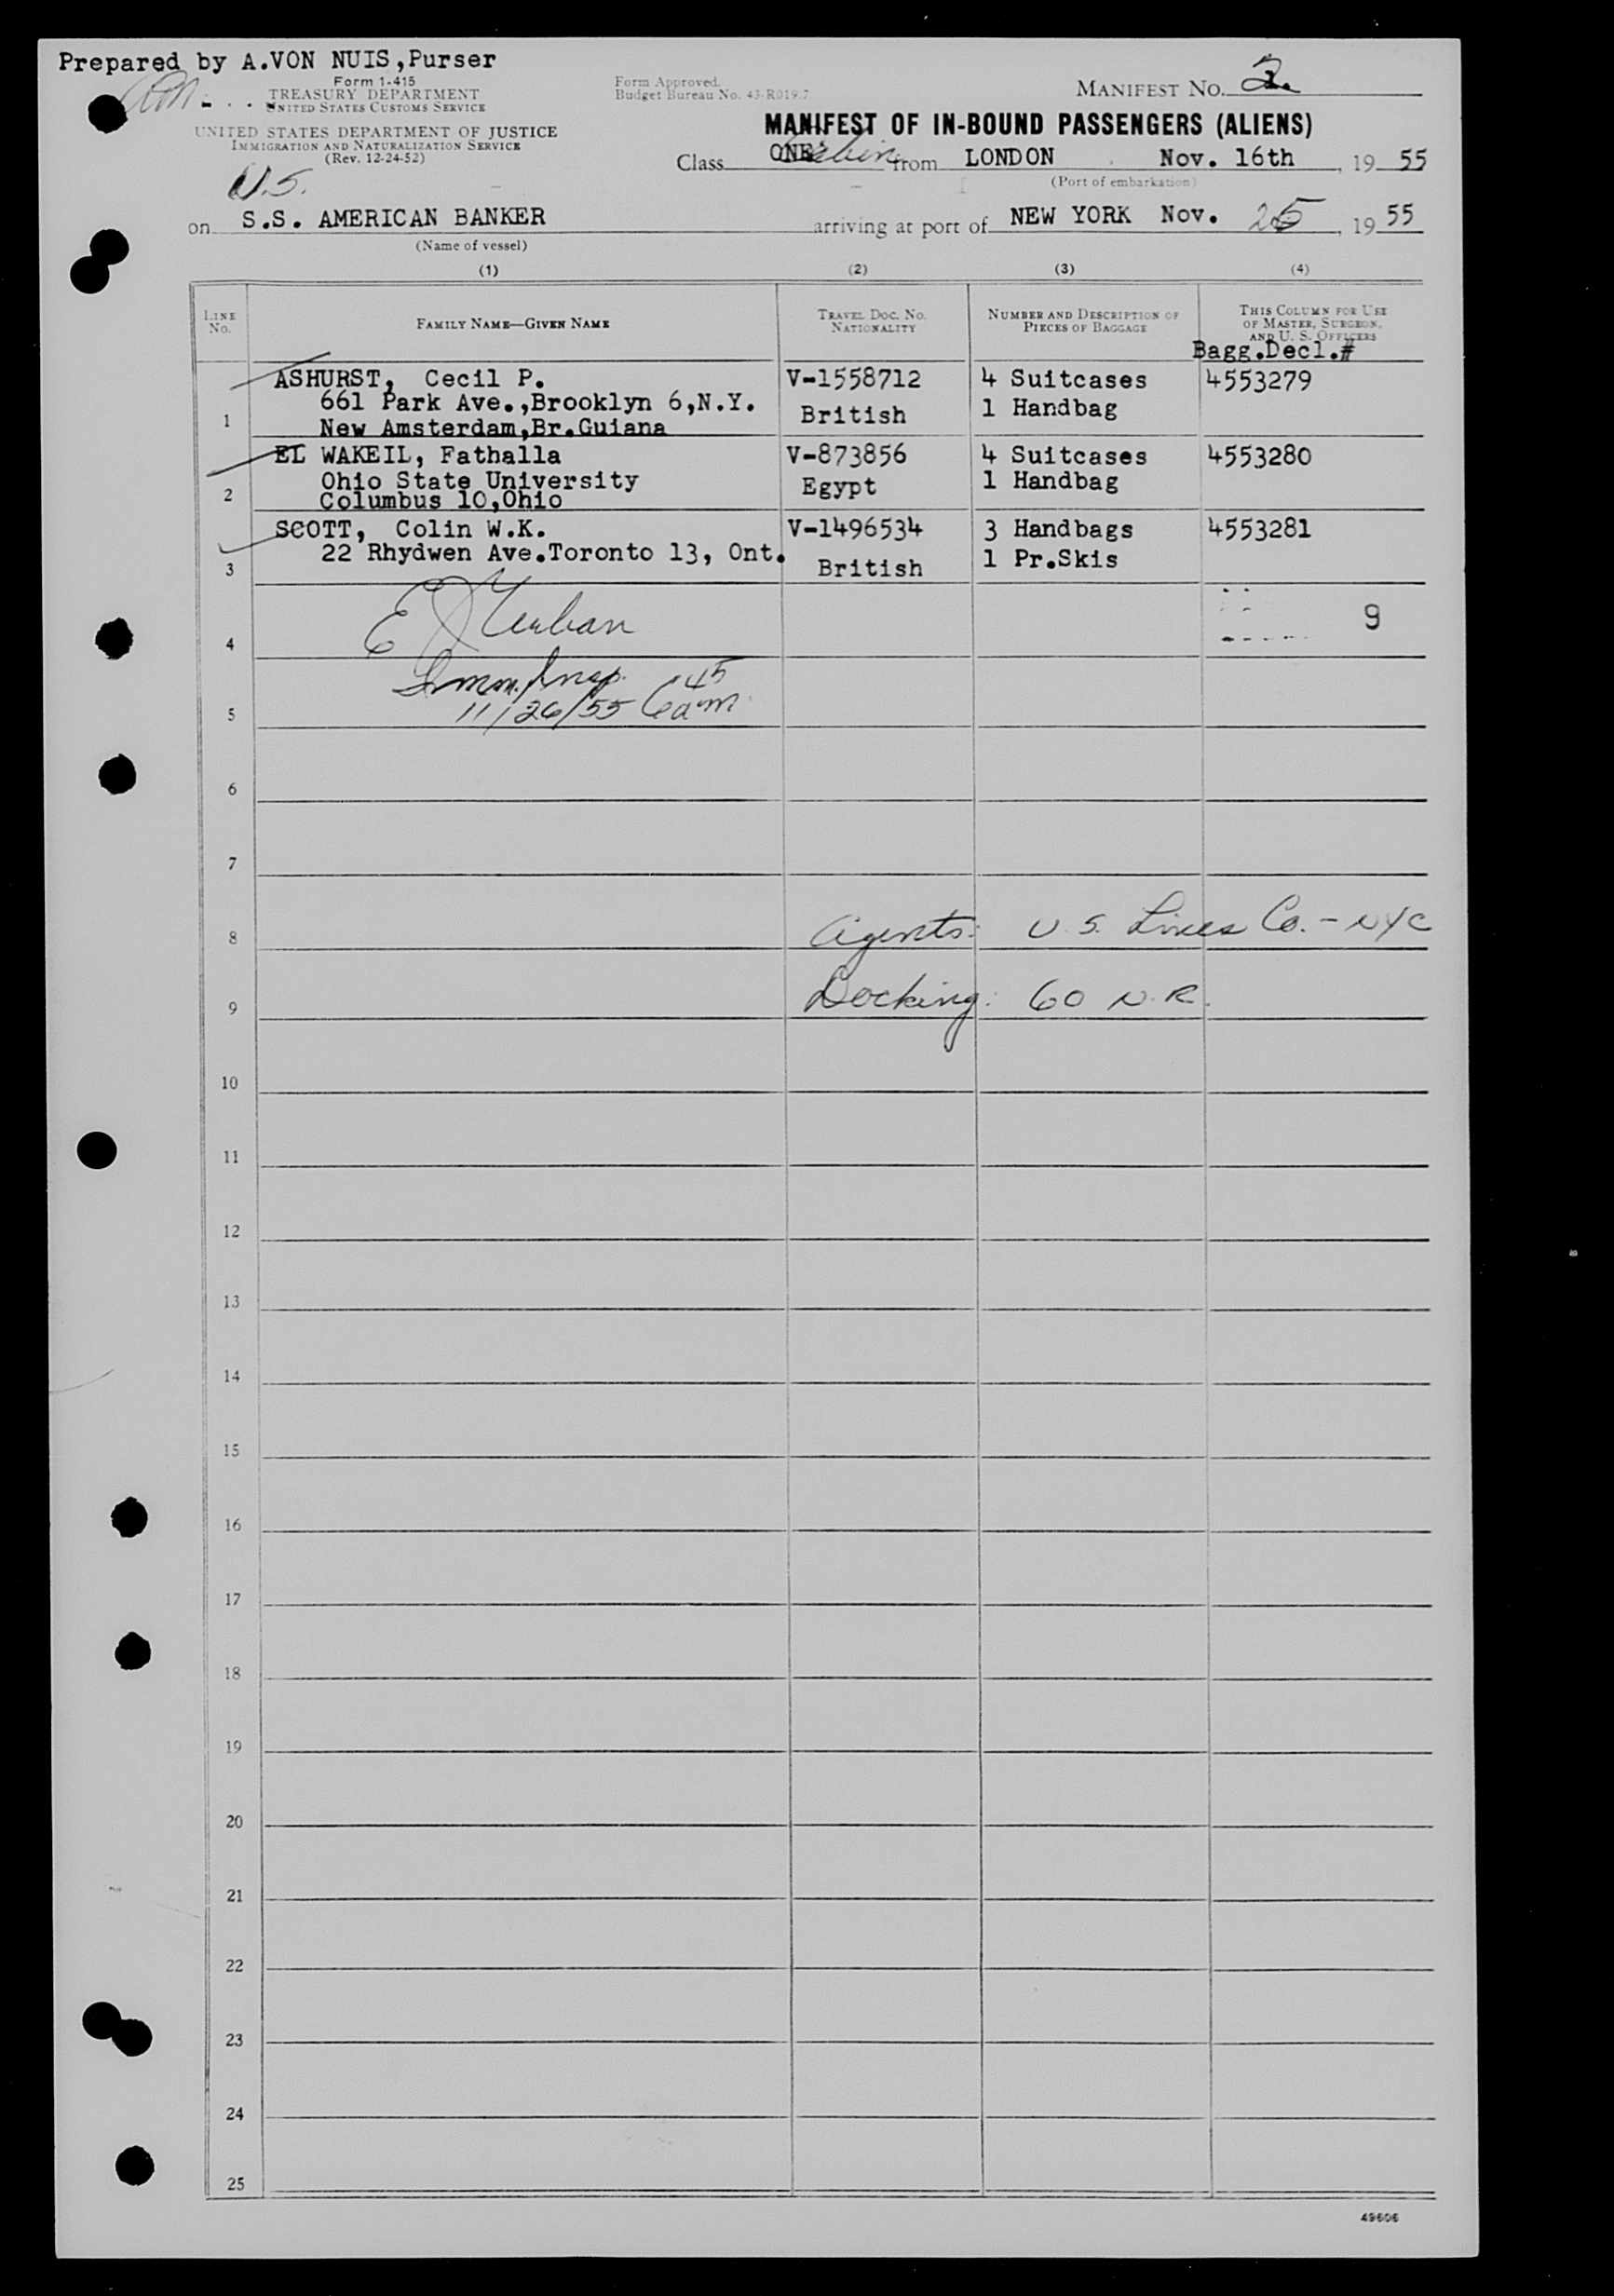 Prepared by A.VON NUIS,Purser
Form 1-415
TREASURY DEPARTMENT
UNITED STATES CUSTOMS SERVICE
UNITED STATES DEPARTMENT OF JUSTICE
IMMIGRATION AND NATURALIZATION SERVICE
(Rev. 12-24-52)
Form Approved.
Budget Bureau No. 43-R019.7
MANIFEST NO. 2.
MANIFEST OF IN-BOUND PASSENGERS (ALIENS)
Class ONE Cabin from LONDON Nov. 16th, 19 55
(Port of embarkation)
U.S.
on S.S. AMERICAN BANKER arriving at port of NEW YORK Nov. 25, 19 55
(Name of vessel)
(1) (2) (3) (4)
LINE No. FAMILY NAME—GIVEN NAME TRAVEL DOC. NO. NATIONALITY NUMBER AND DESCRIPTION OF PIECES OF BAGGAGE THIS COLUMN FOR USE OF MASTER, SURGEON, AND U. S. OFFICERS
Bagg.Decl.#
ASHURST, Cecil P. V-1558712 4 Suitcases 4553279
661 Park Ave.,Brooklyn 6,N.Y. British 1 Handbag
1 New Amsterdam,Br.Guiana
EL WAKEIL, Fathalla V-873856 4 Suitcases 4553280
Ohio State University Egypt 1 Handbag
2 Columbus 10,Ohio
SCOTT, Colin W.K. V-1496534 3 Handbags 4553281
22 Rhydwen Ave.Toronto 13, Ont. British 1 Pr.Skis
3
9
4
Imm. Insp.
11/26/55 6 45 am
5
6
7
8 Agents: U.S. Lines Co. - NYC
9 Docking: 60 N.R.
10
11
12
13
14
15
16
17
18
19
20
21
22
23
24
25
49606